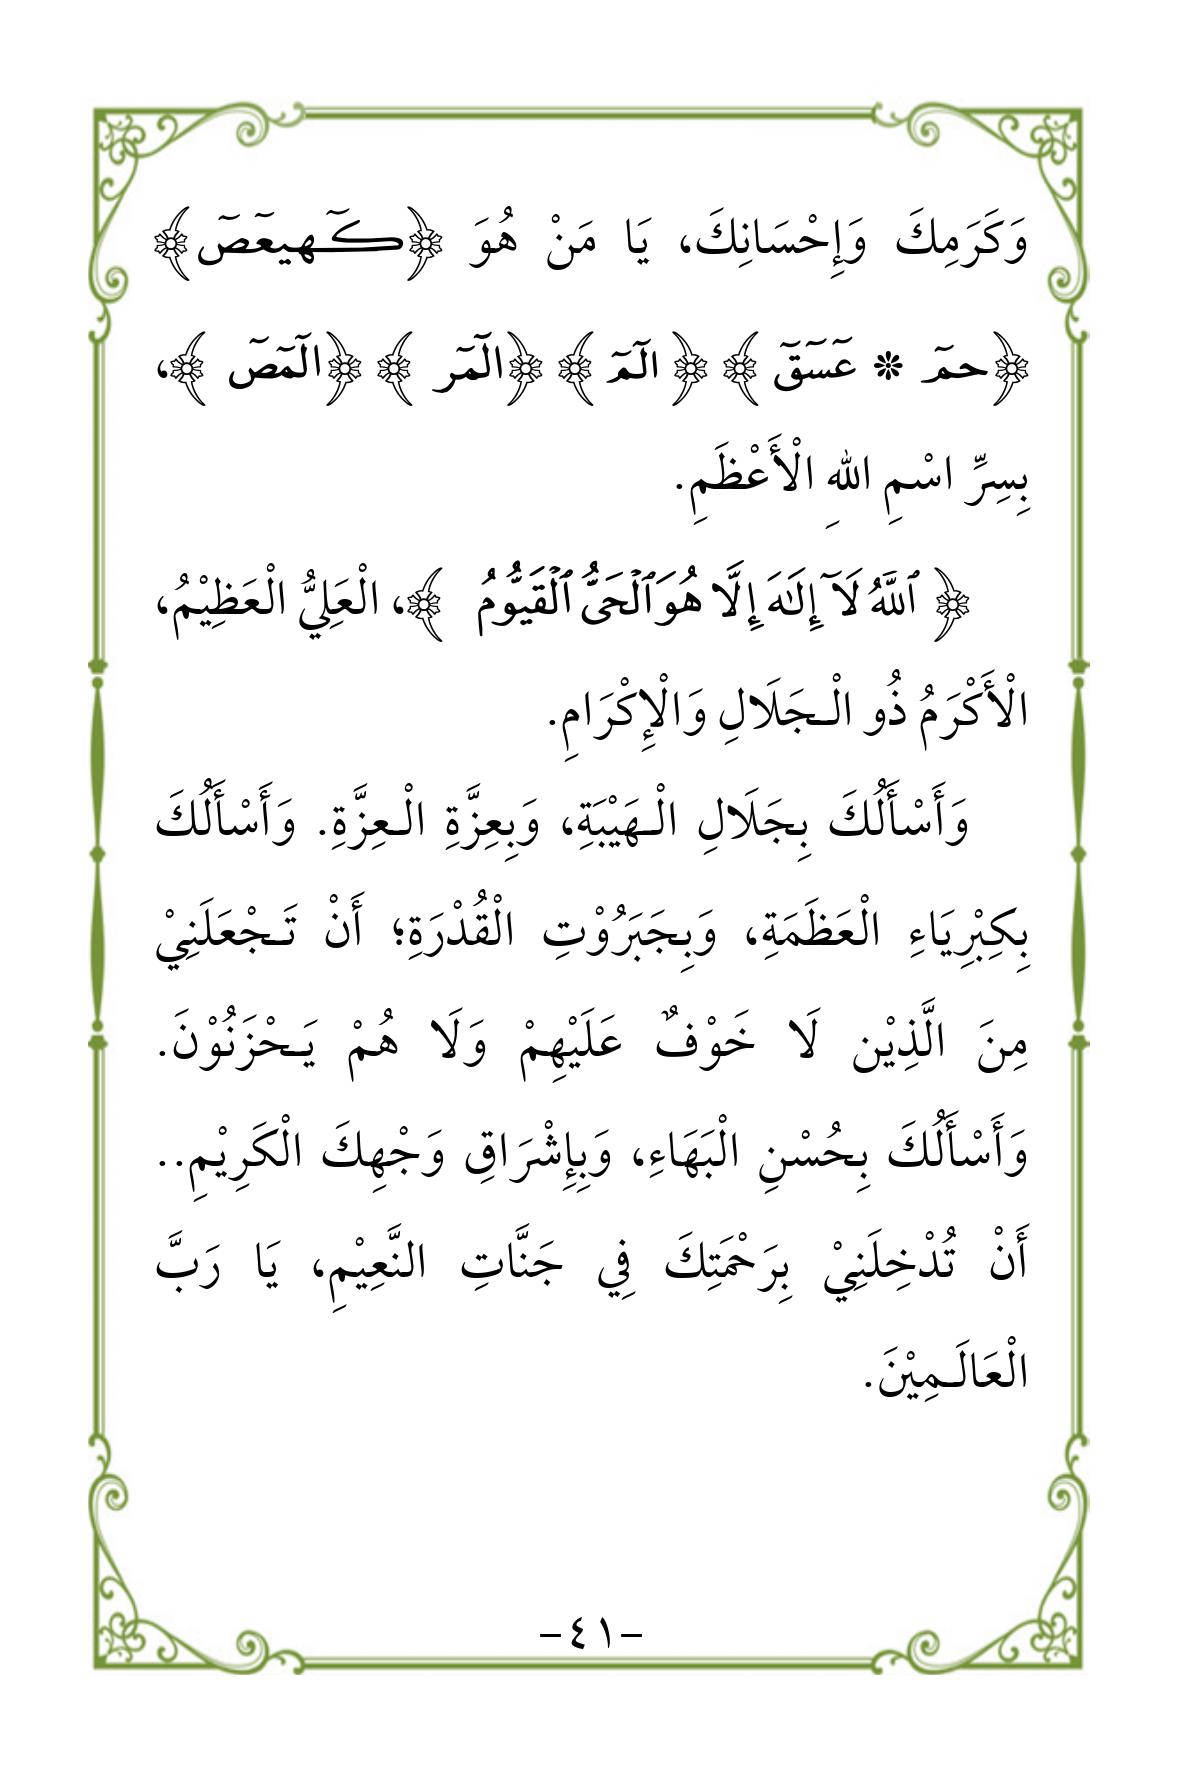 وَكَرَمِكَ وَإِحْسَانِكَ، يَا مَنْ هُوَ ﴿كٓهيعٓصٓ﴾
﴿حمٓ * عٓسٓقٓ﴾ ﴿الٓمٓ﴾ ﴿الٓمٓر﴾ ﴿الٓمٓصٓ﴾،
بِسِرِّ اسْمِ اللهِ الْأَعْظَمِ.
﴿ٱللَّهُ لَآ إِلَٰهَ إِلَّا هُوَ ٱلْحَىُّ ٱلْقَيُّومُ﴾، الْعَلِيُّ الْعَظِيْمُ،
الْأَكْرَمُ ذُو الْـجَلَالِ وَالْإِكْرَامِ.
وَأَسْأَلُكَ بِجَلَالِ الْـهَيْبَةِ، وَبِعِزَّةِ الْـعِزَّةِ. وَأَسْأَلُكَ
بِكِبْرِيَاءِ الْعَظَمَةِ، وَبِجَبَرُوْتِ الْقُدْرَةِ؛ أَنْ تَـجْعَلَنِيْ
مِنَ الَّذِيْن لَا خَوْفٌ عَلَيْهِمْ وَلَا هُمْ يَـحْزَنُوْنَ.
وَأَسْأَلُكَ بِحُسْنِ الْبَهَاءِ، وَبِإِشْرَاقِ وَجْهِكَ الْكَرِيْمِ..
أَنْ تُدْخِلَنِيْ بِرَحْمَتِكَ فِي جَنَّاتِ النَّعِيْمِ، يَا رَبَّ
الْعَالَـمِيْنَ.
–٤١–